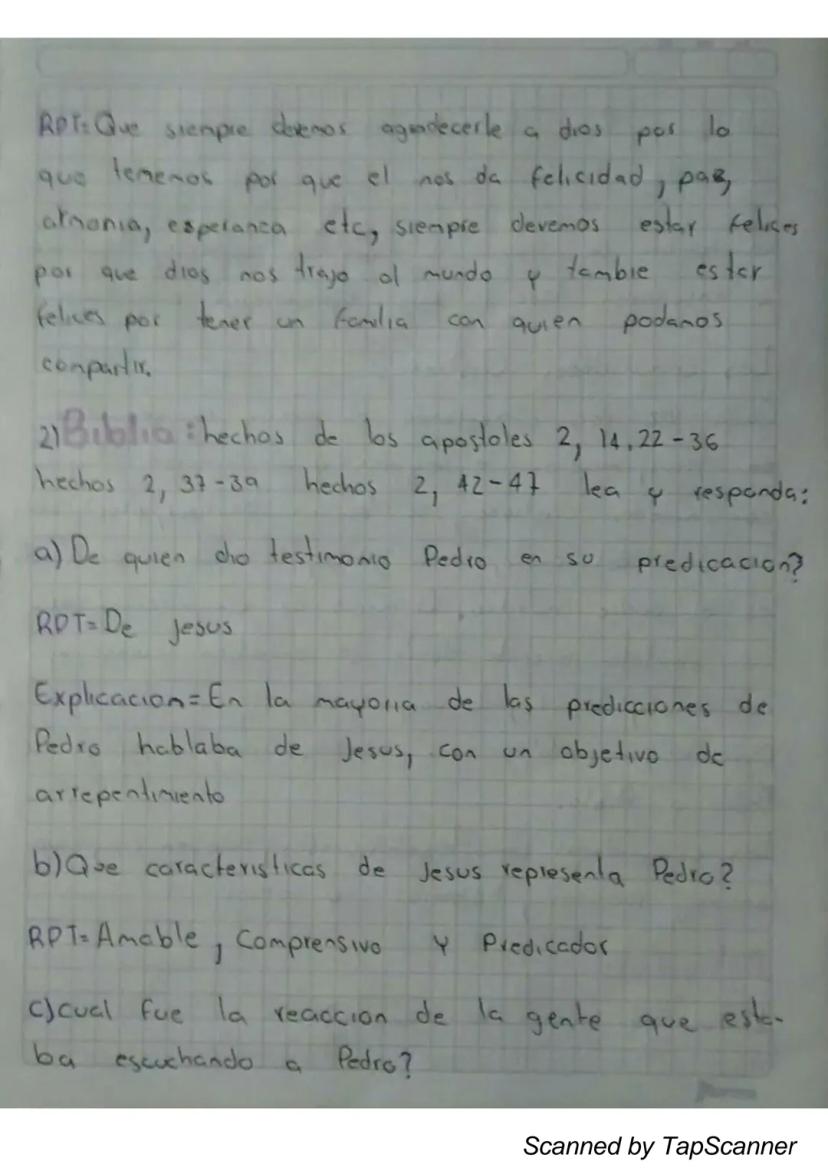 RPT= Que siempre devemos agradecerle a dios por lo
que tememos por que el nos da felicidad, paz,
armonia, esperanca etc, siempre devemos estar felices
por que dios nos trajo al mundo y tambie estar
felices por tener un familia con quien podamos
compartir.
2) Biblia: hechos de los apostoles 2, 14. 22-36
hechos 2, 37-39 hechos 2, 42-47 lea y responda:
a) De quien dio testimonio Pedro en su predicacion?
RPT= De jesus
Explicacion= En la mayoria de las predicciones de
Pedro hablaba de Jesus, con un objetivo de
arrepentimiento
b) Que caracteristicas de Jesus representa Pedro?
RPT= Amable, Comprensivo y Predicador
c) cual fue la reaccion de la gente que esta-
ba escuchando a Pedro?
Scanned by TapScanner